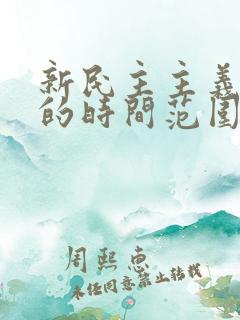 新民主主義
的時間范圍
周熙惠
未经同意禁止转载